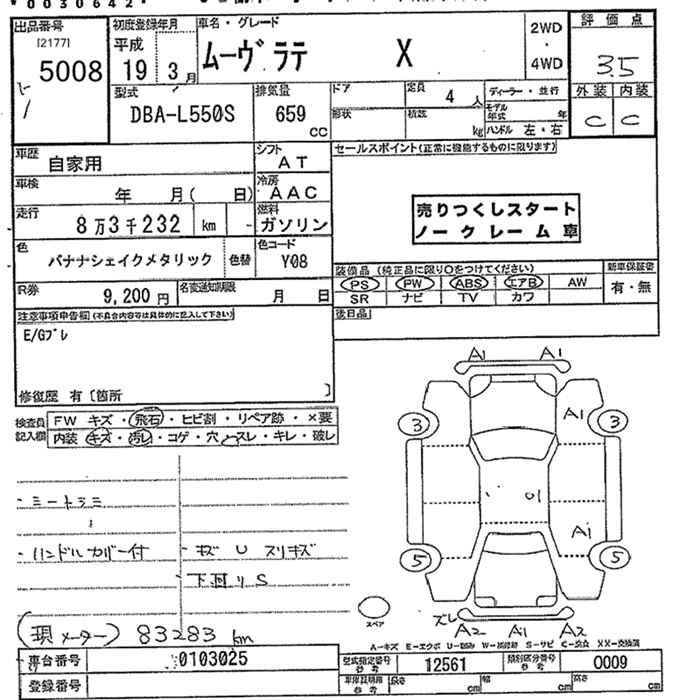 0030642
出品番号 初度登録年月 車名・グレード 評価点
[2177] 平成 2WD
5008 19年 3月 ムーヴ ラテ X ・ 3.5
4WD
型式 排気量 ドア 定員 4人 ディーラー・並行 外装 内装
DBA-L550S 659cc 形状 積載 kg モデル年式 年 C C
ハンドル 左・右
車歴 自家用 シフト AT セールスポイント(正常に機能するものに限ります)
車検 年 月( 日) 冷房 AAC
走行 8万3千232 km 燃料 ガソリン 売りつくしスタート
ノークレーム車
色 バナナシェイクメタリック 色替 色コード Y08
装備品(純正品に限り○をつけてください) 新車保証書
R券 9,200円 名変通知期限 月 日 PS PW ABS エアB AW 有・無
SR ナビ TV カワ
注意事項申告欄(不具合内容等は具体的に記入して下さい) 後日品
E/Gブレ
修復歴 有〔箇所 〕
検査員記入欄 FW キズ・飛石・ヒビ割・リペア跡・×要
内装・キズ・汚レ・コゲ・穴・スレ・キレ・破レ
A1 A1
A1
3 3
A1
5 5
・シートシミ
・ハンドルカバー付 ・キズ U スリキズ
・下回りS
スペア
ズレ A2 A1 A2
(現メーター) 83283 km
A-キズ E-エクボ U-凹み W-補修跡 S-サビ C-腐食 XX-交換済
車台番号 0103025 型式指定番号 参考 12561 類別区分番号 参考 0009
登録番号 車庫証明用 参考 長さ cm 幅 cm 高さ cm